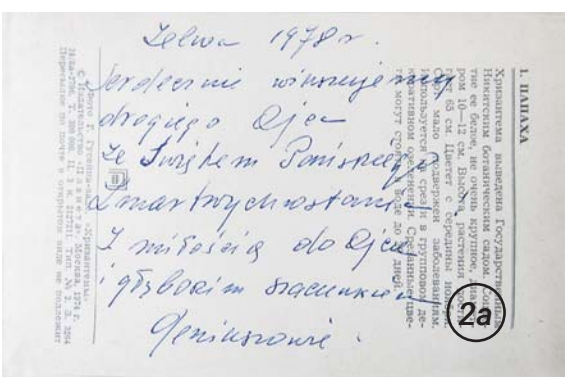 Zelwa 1978 r.
Serdecznie winszujemy
drogiego Ojca
Ze Świętem Pańskiego
Zmartwychwstania
Z miłością do Ojca
i głybokim szacunkiem
Geniuszowie.
2a
1. ПАПАХА
Хризантема выведена Государственным
Никитским ботаническим садом.
тие ее белое, не очень крупное,
ром 10—12 см. Высота растения
65 см. Цветет с середины ноября.
мало подвержен заболеваниям.
используется на срез и в групповом де-
коративном озеленении. Срезанные цве-
ты могут стоять в воде до дней.
Фото Г. Гусейн-заде «Хризантемы»
© Издательство «Планета». Москва, 1974 г.
Пересылке по почте в открытом виде не подлежит